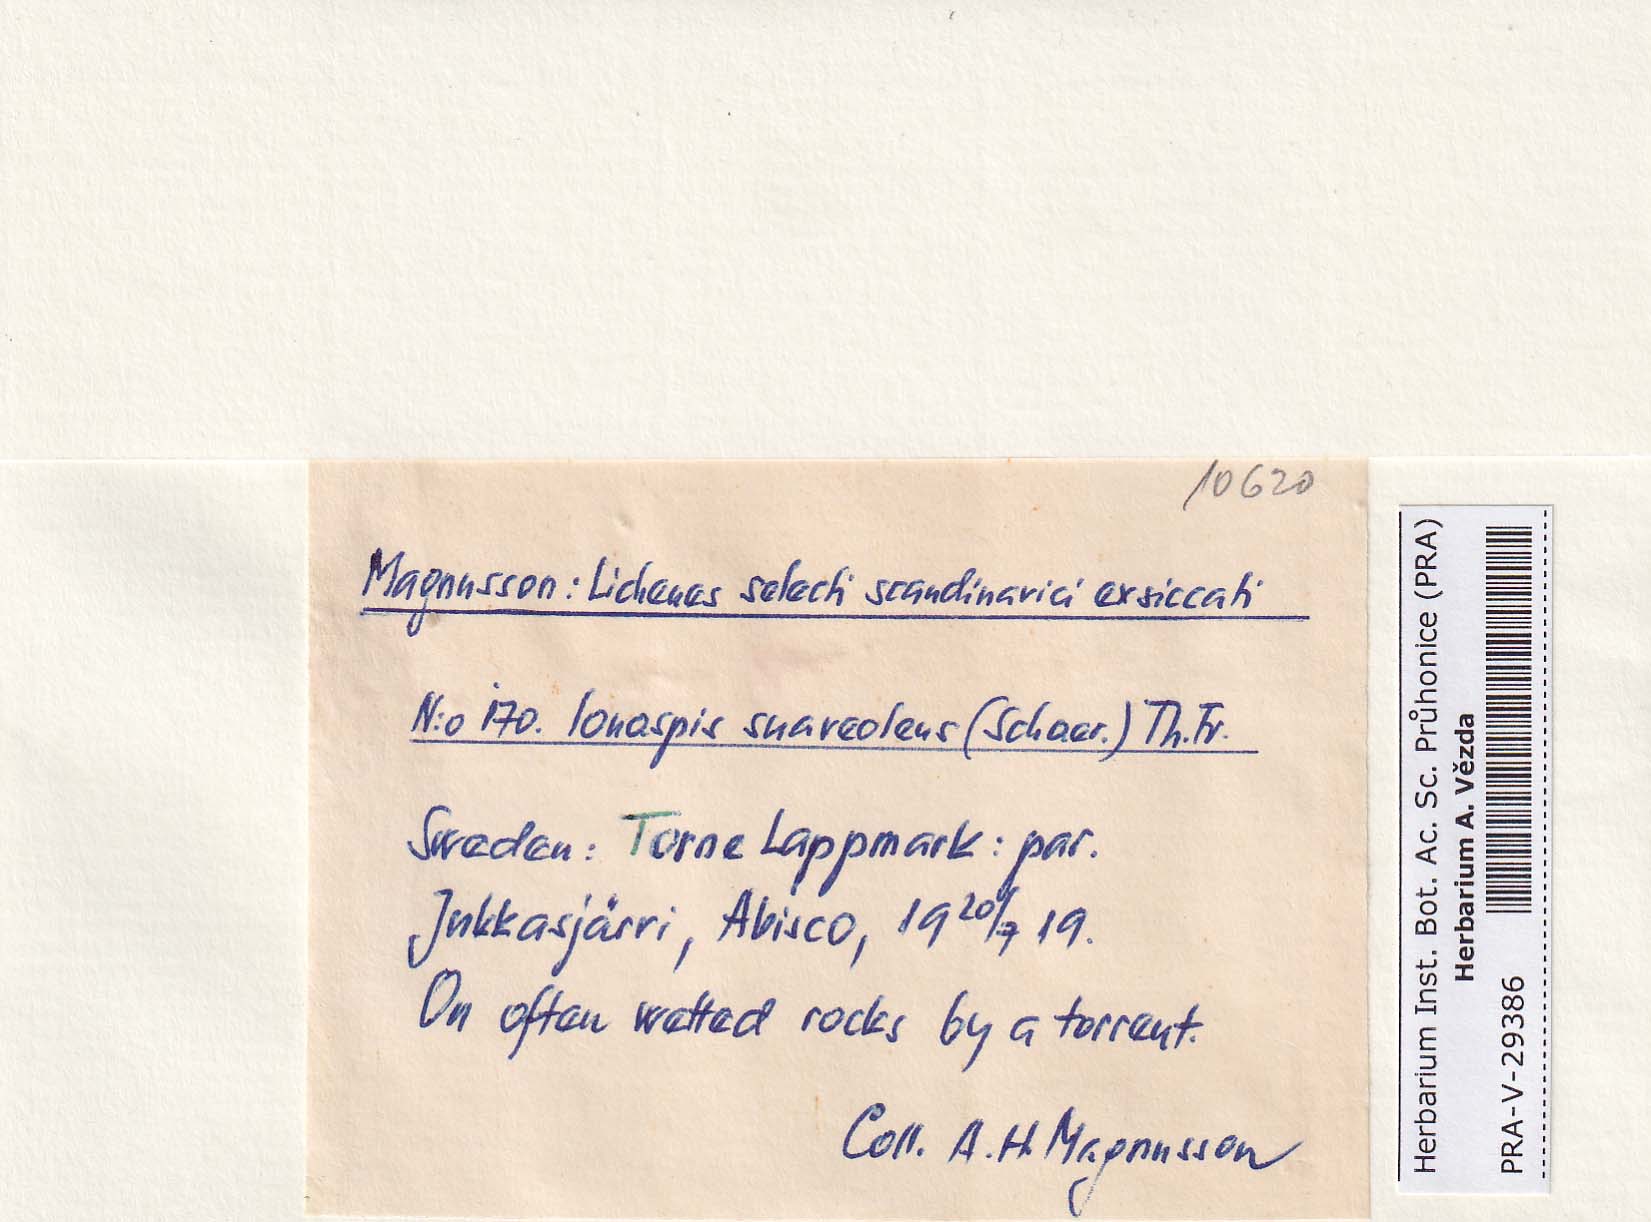 10620
Magnusson: Lichenes selecti scandinavici exsiccati
N:o 170. Ionaspis suaveolens (Schaer.) Th. Fr.
Sweden: Torne Lappmark: par.
Jukkasjärvi, Abisco, 19 20/7 19.
On often wetted rocks by a torrent.
Coll. A. H. Magnusson
Herbarium Inst. Bot. Ac. Sc. Průhonice (PRA)
Herbarium A. Vězda
PRA-V-29386